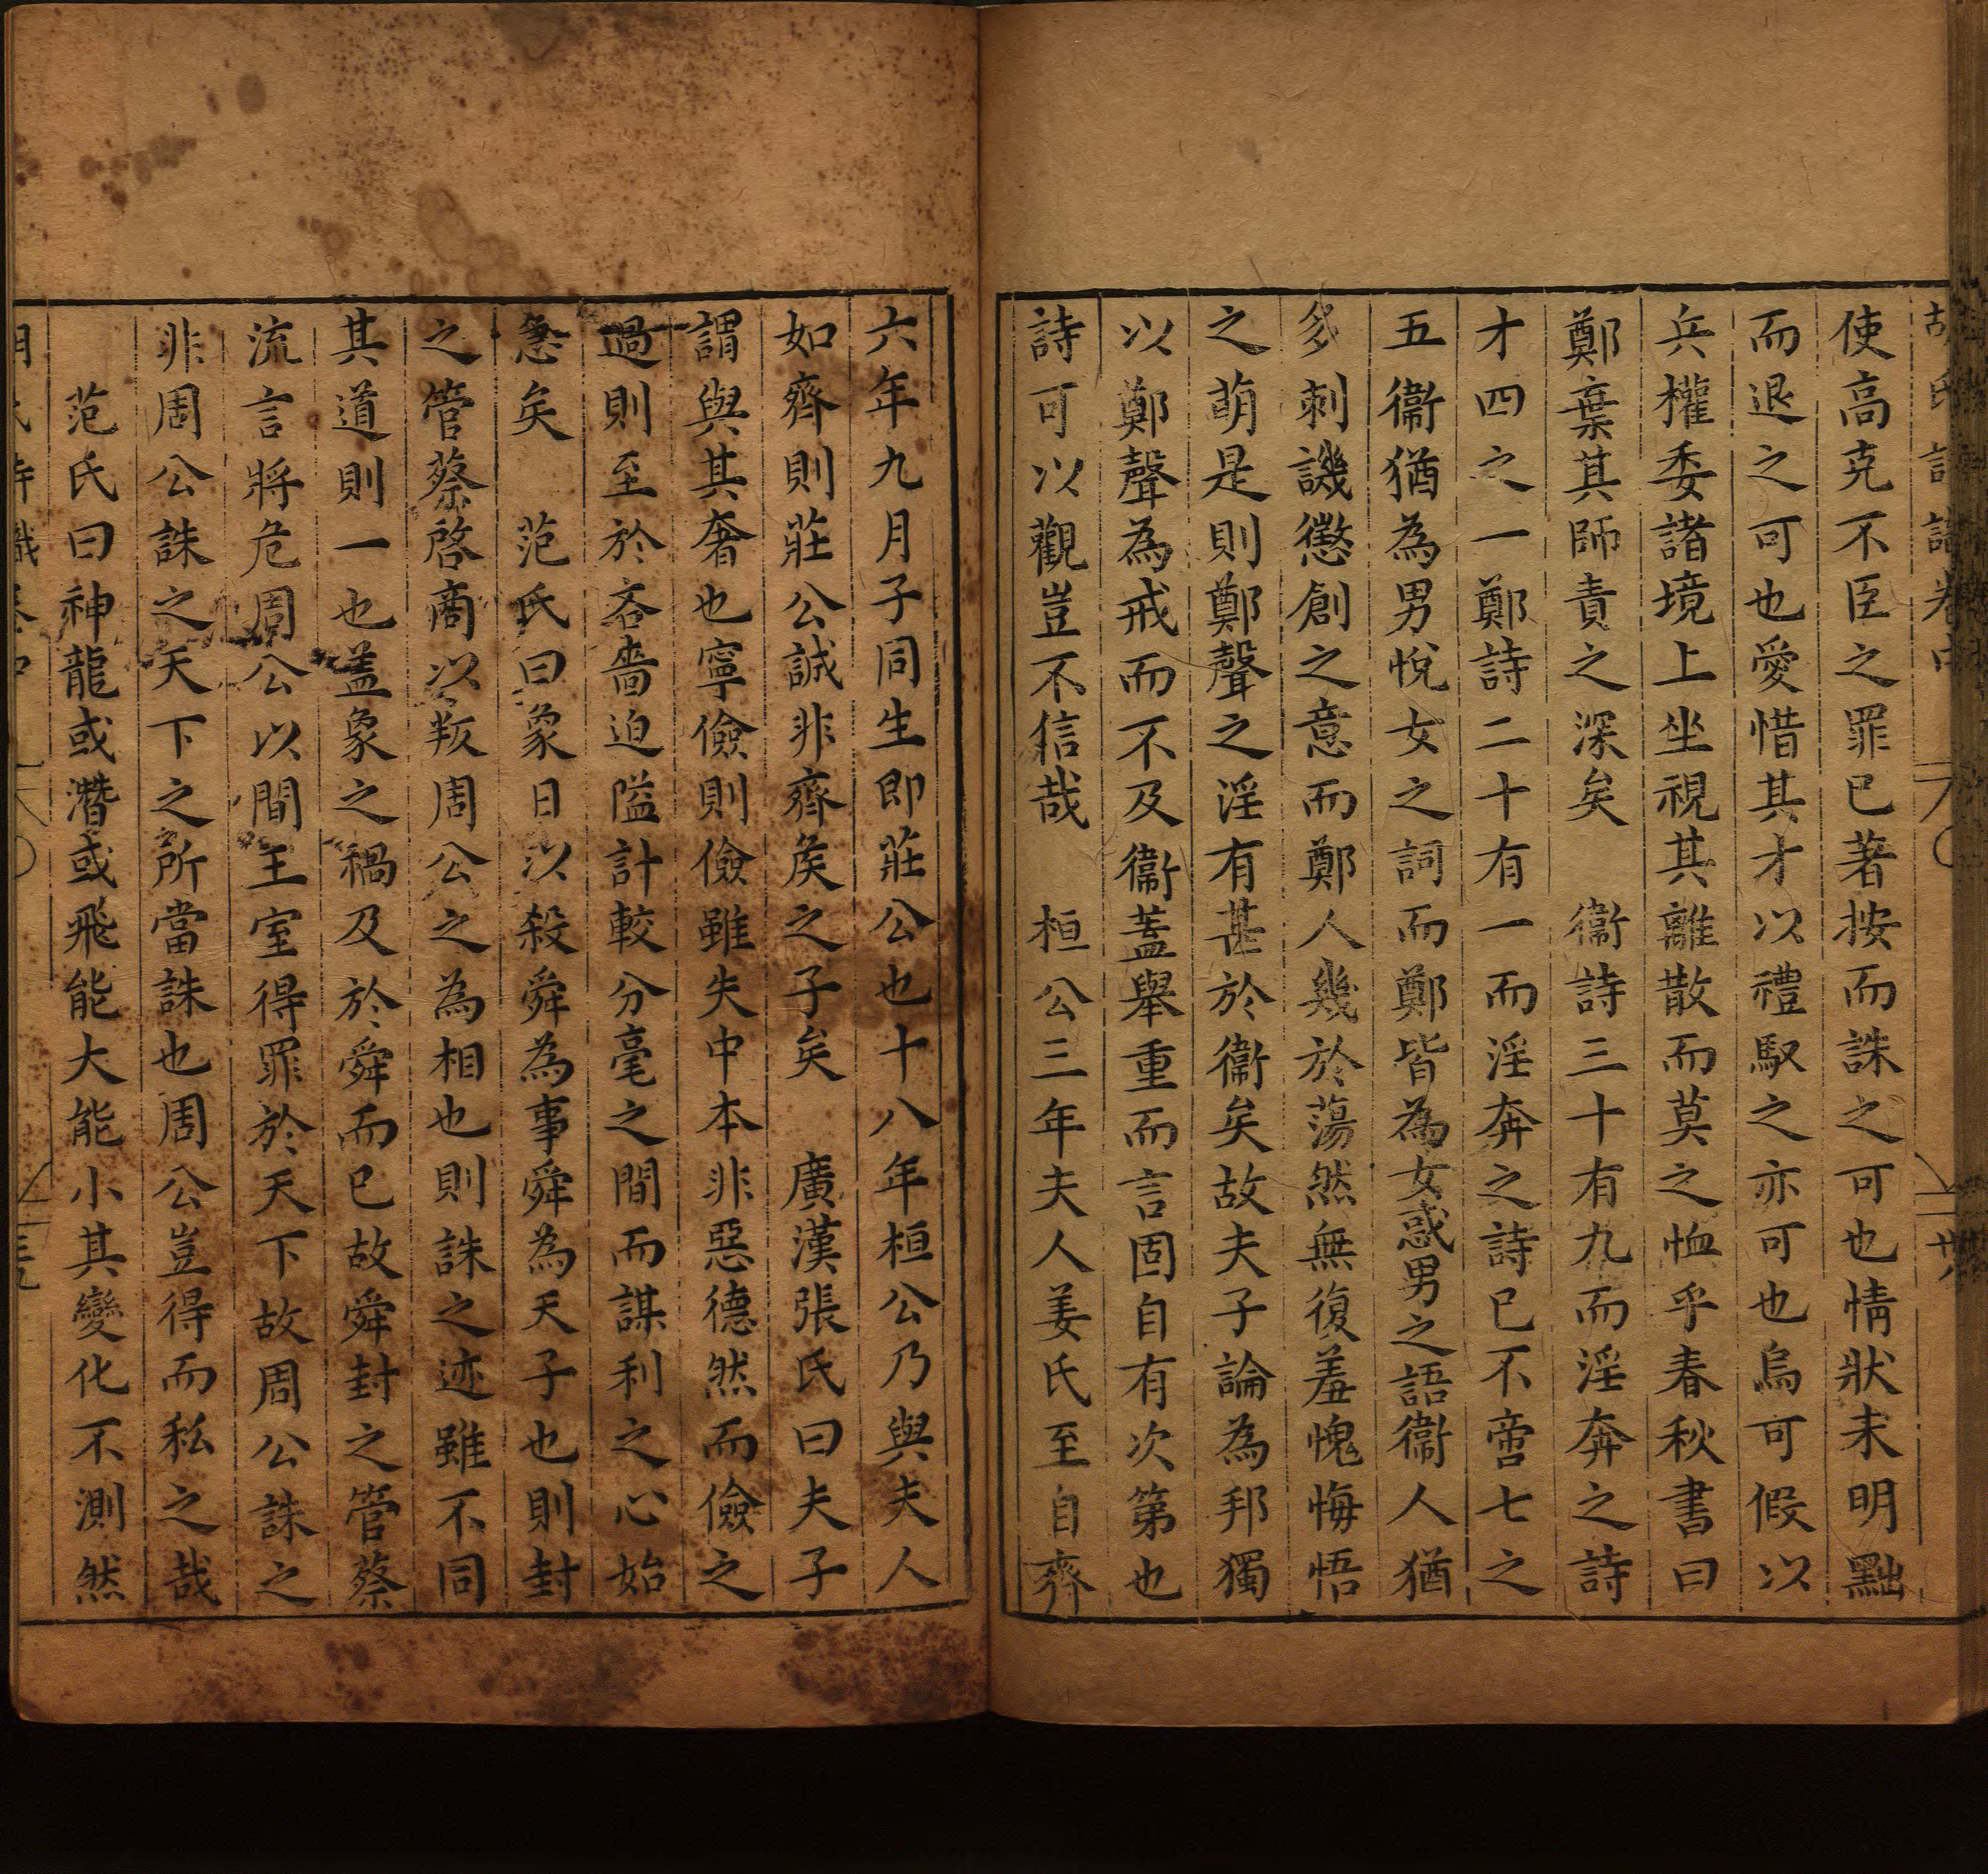 胡氏詩識卷中
使高克不臣之罪已著按而誅之可也情狀未明黜
而退之可也愛惜其才以禮馭之亦可也烏可假以
兵權委諸境上坐視其離散而莫之恤乎春秋書曰
鄭棄其師責之深矣　衞詩三十有九而淫奔之詩
才四之一鄭詩二十有一而淫奔之詩已不啻七之
五衞猶為男悅女之詞而鄭皆為女惑男之語衞人猶
多刺譏懲創之意而鄭人幾於蕩然無復羞愧悔悟
之萌是則鄭聲之淫有甚於衞矣故夫子論為邦獨
以鄭聲為戒而不及衞蓋舉重而言固自有次第也
詩可以觀豈不信哉　桓公三年夫人姜氏至自齊
六年九月子同生即莊公也十八年桓公乃與夫人
如齊則莊公誠非齊矦之子矣　廣漢張氏曰夫子
謂與其奢也寧儉則儉雖失中本非惡德然而儉之
過則至於吝嗇迫隘計較分毫之間而謀利之心始
急矣　范氏曰象日以殺舜為事舜為天子也則封
之管蔡啓商以叛周公之為相也則誅之迹雖不同
其道則一也盖象之禍及於舜而已故舜封之管蔡
流言將危周公以間王室得罪於天下故周公誅之
非周公誅之天下之所當誅也周公豈得而私之哉
范氏曰神龍或潛或飛能大能小其變化不測然